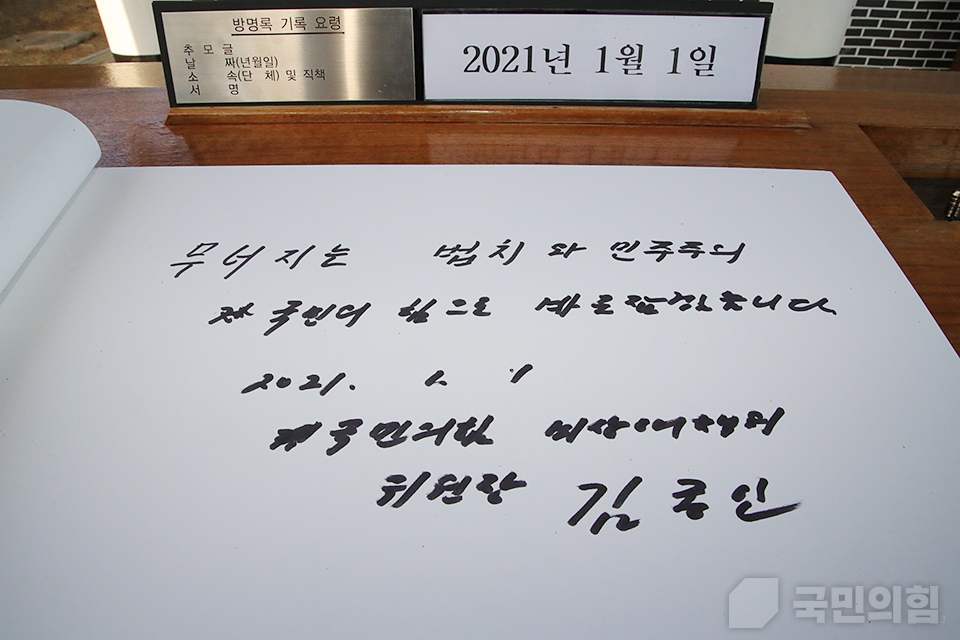 방명록 기록 요령
추 모 글
날 짜(년월일)
소 속(단 체) 및 직책
서 명
2021년 1월 1일
무너지는 법치와 민주주의
국민의 힘으로 바로잡겠습니다.
2021. 1. 1
국민의힘 비상대책위
위원장 김종인
국민의힘